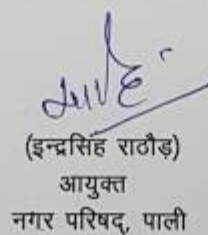 (इन्द्रसिंह राठौड़)
आयुक्त
नगर परिषद्, पाली